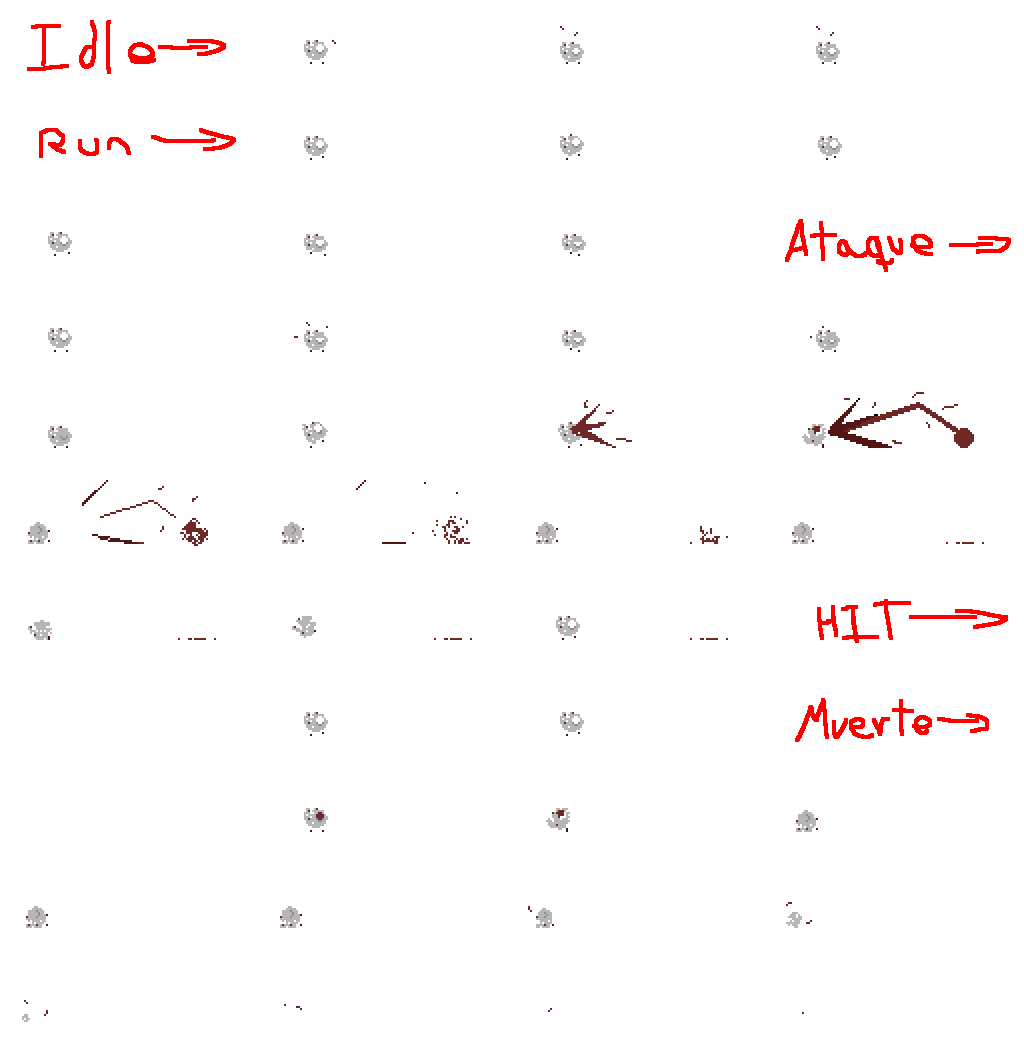 Idle
Run
Ataque
HIT
Muerto